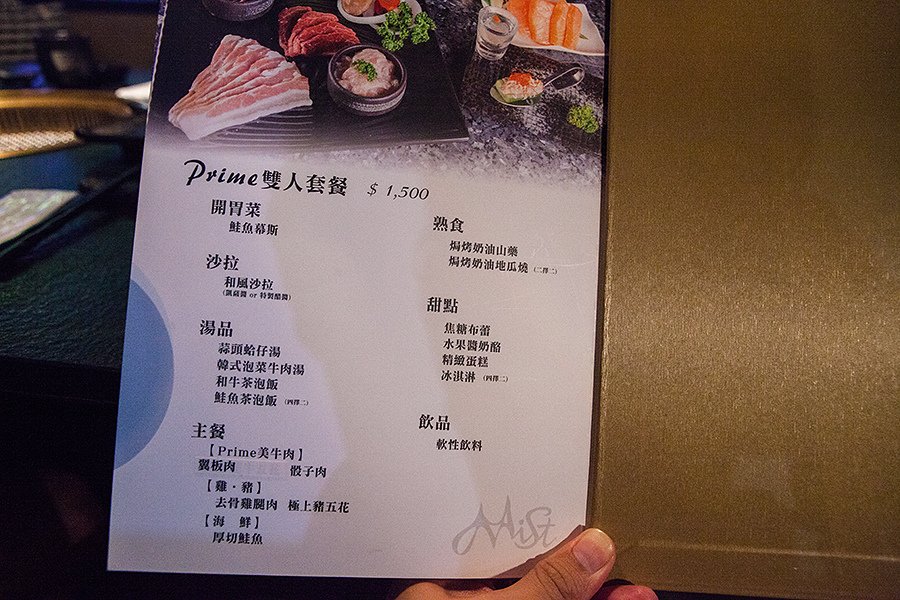 Prime雙人套餐 $ 1,500
開胃菜
鮭魚慕斯
沙拉
和風沙拉
(凱薩醬 or 特製醋醬)
湯品
蒜頭蛤仔湯
韓式泡菜牛肉湯
和牛茶泡飯
鮭魚茶泡飯 (四擇二)
主餐
【Prime美牛肉】
翼板肉 骰子肉
【雞・豬】
去骨雞腿肉 極上豬五花
【海 鮮】
厚切鮭魚
熟食
焗烤奶油山藥
焗烤奶油地瓜燒 (二擇二)
甜點
焦糖布蕾
水果醬奶酪
精緻蛋糕
冰淇淋 (四擇二)
飲品
軟性飲料
Mist